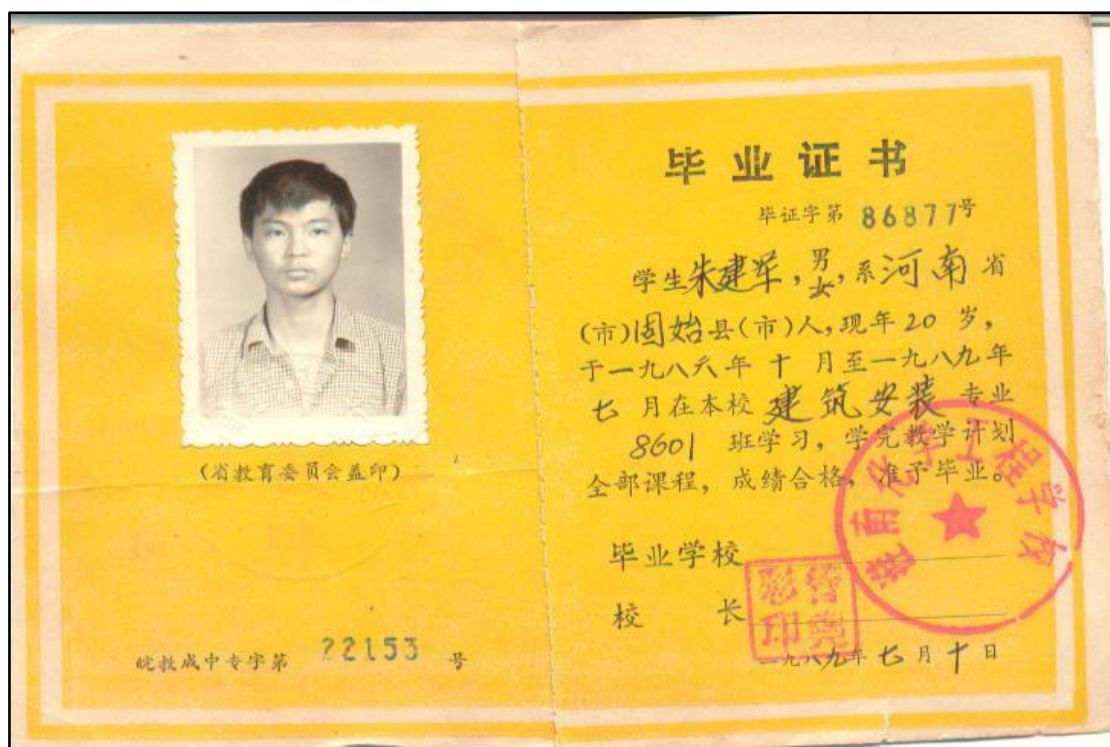 (省教育委员会盖印)
皖教成中专字第 22153 号
毕业证书
毕证字第 86877号
学生朱建军,男女,系河南省
(市)固始县(市)人,现年20岁,
于一九八六年十月至一九八九年
七月在本校建筑安装专业
8601 班学习,学完教学计划
全部课程,成绩合格,准予毕业。
毕业学校
校 长
一九八九年七月十日
化学工程学校